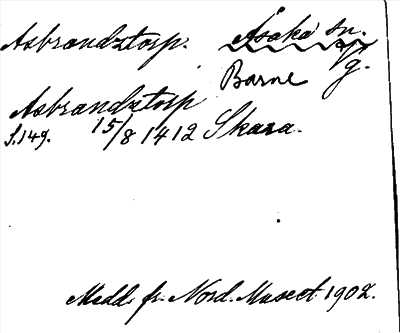 Asbrandztorp. Åsaka sn.
Vg.
Barne
Asbrandztorp
S.149. 15/8 1412 Skara.
Medd. fr. Nord. Museet 1902.